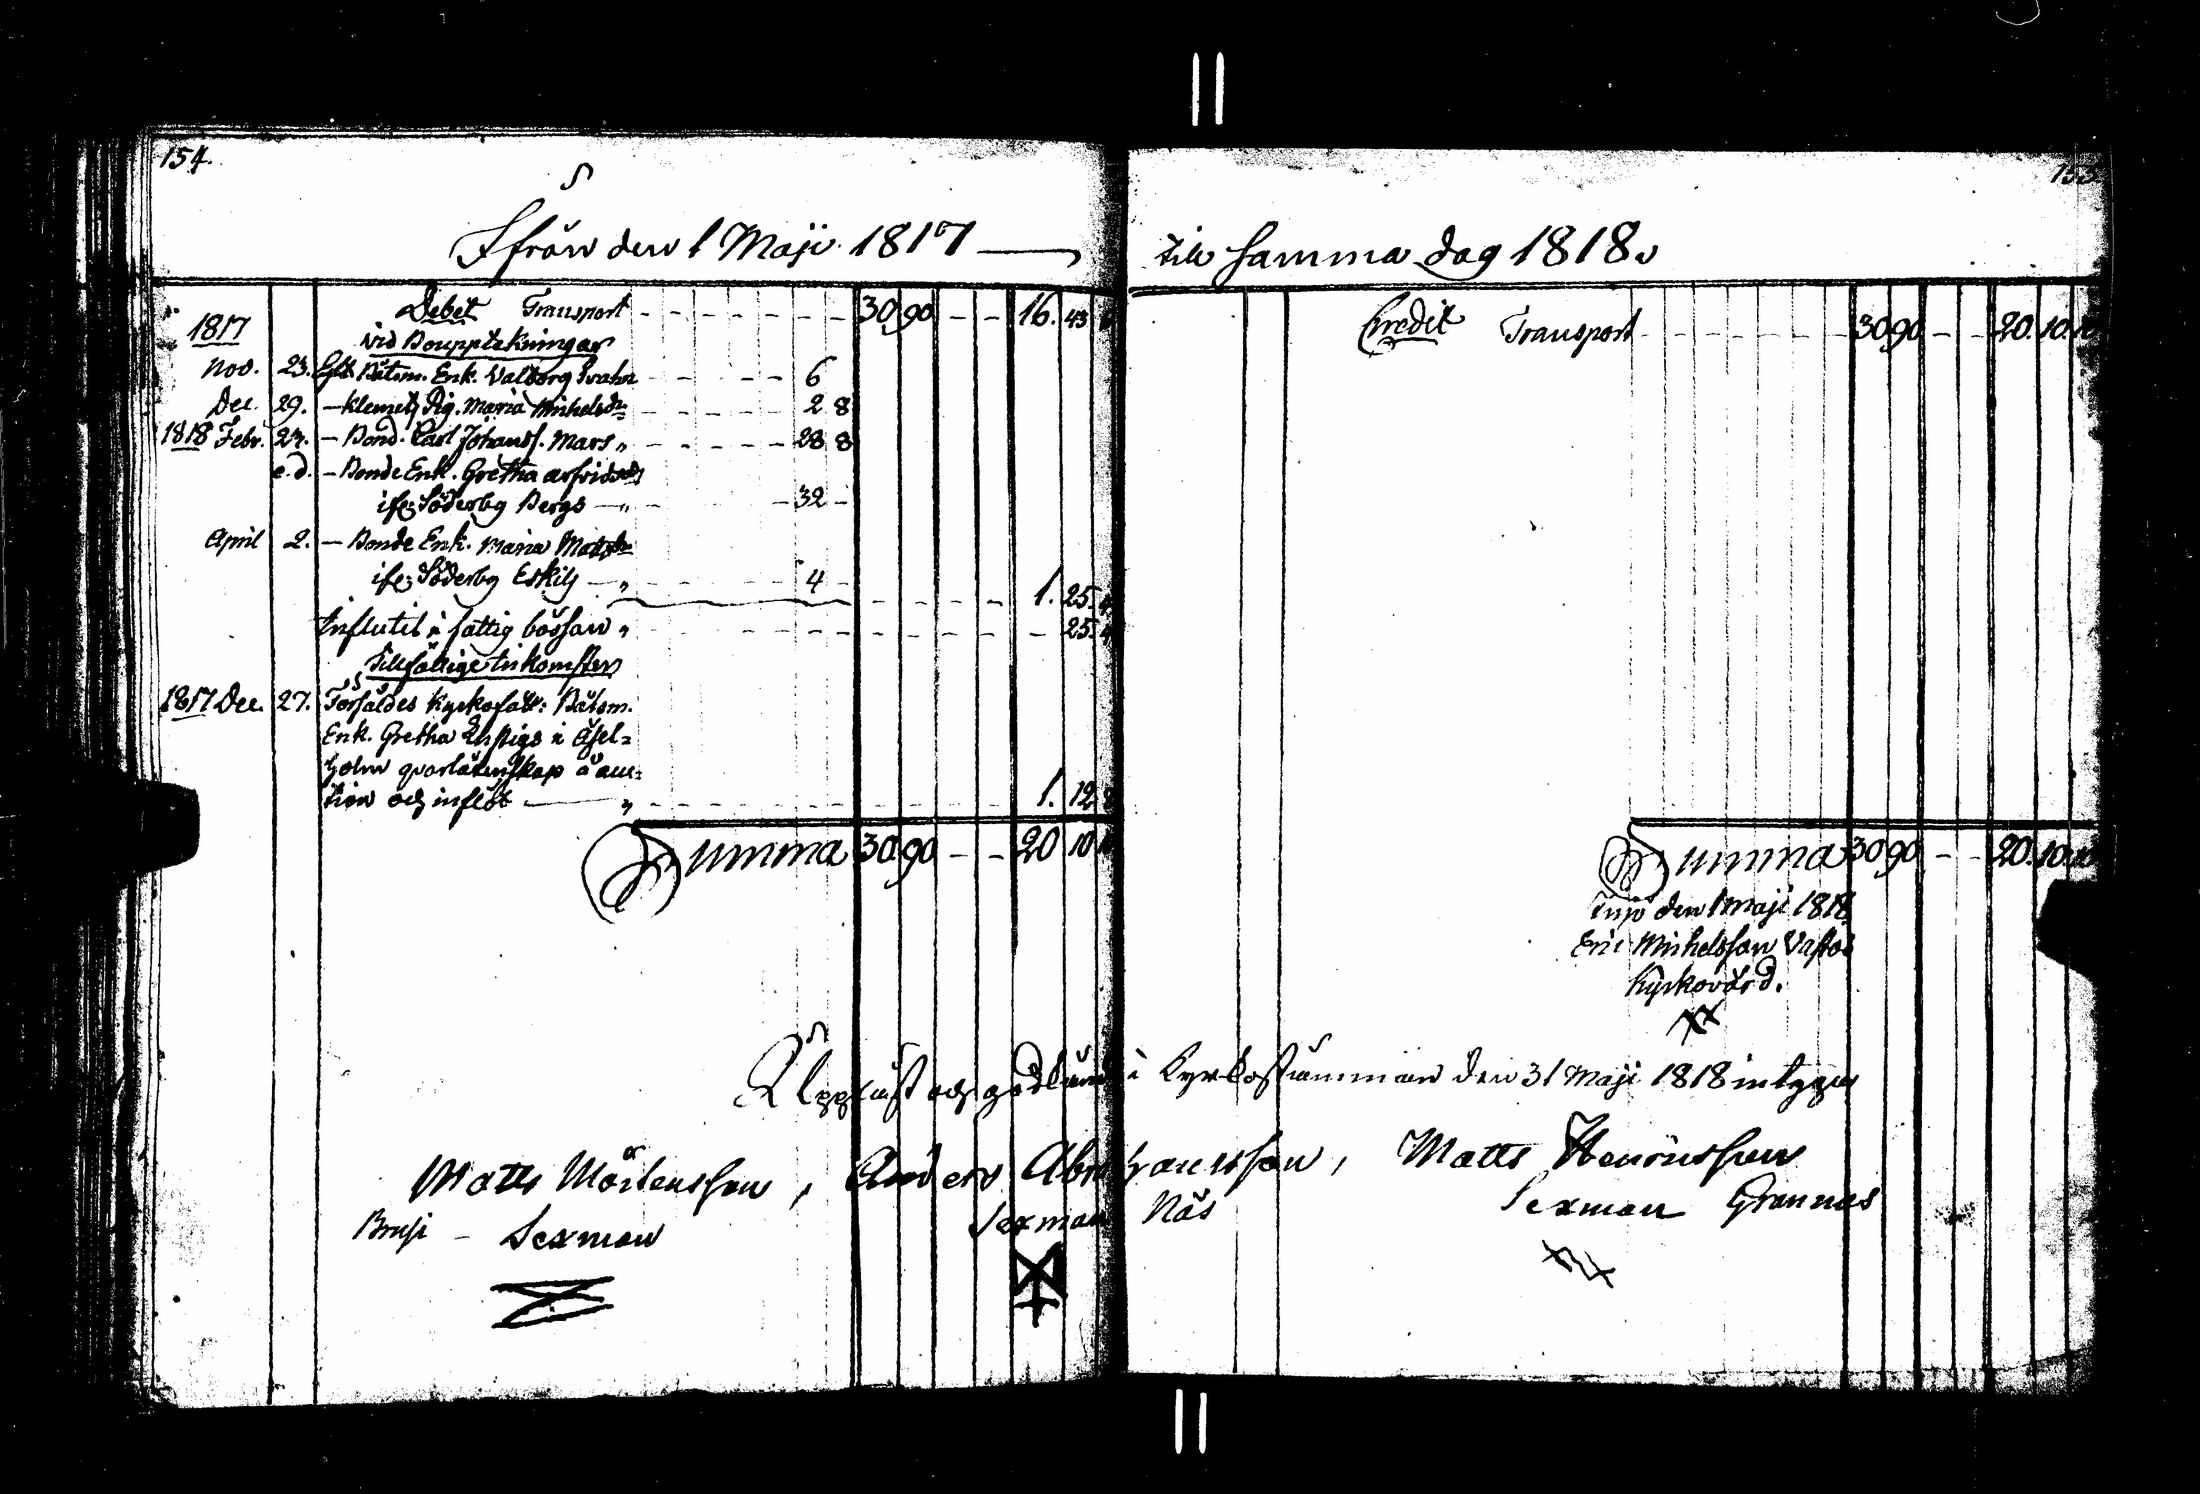 154.
Ifrån den 1 Maji 1817
Debet Transport 30 90 - - 16. 43
1817
vid Bouppteckningar
Nov. 23. Eft. Båtsm. Enk. Valborg Svahn 6
Dec. 29. - Klemets Pig. Maria Michelsdr 2 8
1818 Febr. 24. - Bond. Carl Johanss. Mars " 28 8
e. d. - Bonde Enk. Gretha Arfvidsdr
ifr. Söderby Bergs - " - 32 -
April 2. - Bonde Enk. Maria Mattsdr
ifr. Söderby Eskils - " 4 - 1. 25.
Influtit i fattig bössan " 25.
Tillfällige Inkomster
1817 Dec. 27. Försåldes Kyrkofatt: Båtsm.
Enk. Gretha i
holm qvarlåtenskap å auc=
tion och inflöt " 1. 12 8
Summa 30 90 - - 20 10
Matts Mårtensson, Anders Abrahamsson, Matts Henricsson
Sexman Sexman Näs Sexman Grannas
155
till samma dag 1818.
Credit Transport 30 90 - - 20. 10.
Summa 30 90 - - 20. 10.
den 1 Maji 1818
Eric Michelsson
Kyrkovärd.
Uppläst och godkänd i Kyrkostämman den 31 Maji 1818 intyga